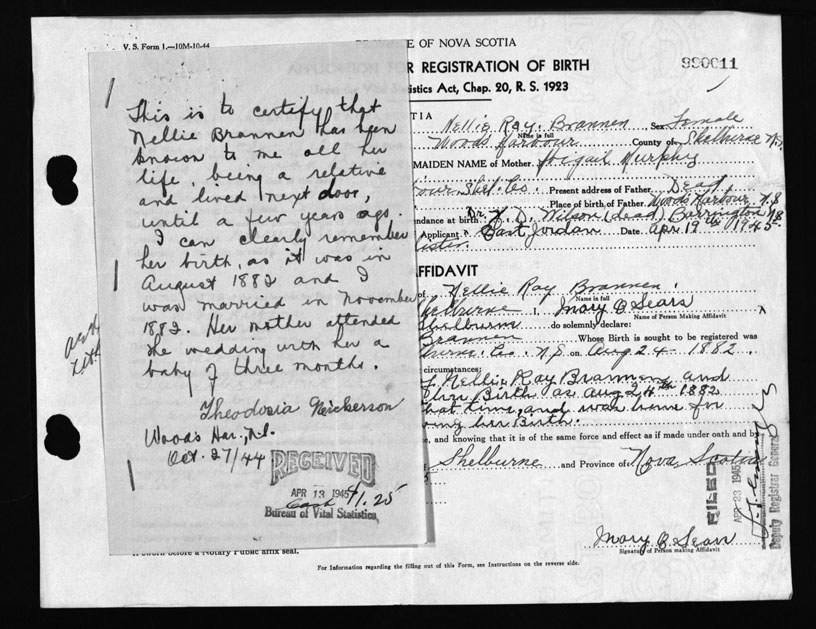 V. S. Form 1.—10M-10-44
E OF NOVA SCOTIA
R REGISTRATION OF BIRTH
istics Act, Chap. 20, R. S. 1923
990011
This is to certify that
Nellie Brannen has been
known to me all her
life, being a relative
and lived next door,
until a few years ago.
I can clearly remember
her birth, as it was in
August 1882 and I
was married in November
1882. Her mother attended
the wedding with her a
baby of three months.
Theodosia Nickerson
Woods Har., N.S.
Oct. 27/44
RECEIVED
APR 13 1945
Cash $1.25
Bureau of Vital Statistics
TIA
Nellie Ray Brannen Sex Female
Name in full
Woods Harbour County of Shelburne N.S.
MAIDEN NAME of Mother Abigail Murphy
our, Shel. Co. Present address of Father Dead
Place of birth of Father Woods Harbour, N.S.
endance at birth Dr. Wilson (dead) Barrington N.S.
Applicant East Jordan Date Apr. 19th 1945
Sister.
AFFIDAVIT
of Nellie Ray Brannen.
Name in full
Shelburne I, Mary O Sears
Name of Person Making Affidavit
Shelburne do solemnly declare:
Brannen Whose Birth is sought to be registered was
urne. Co. N.S on Aug 24 1882.
circumstances:
Nellie Ray Brannen and
Birth as Aug 24th 1882
that time, and was home for
her Birth.
e, and knowing that it is of the same force and effect as if made under oath and by
Shelburne and Province of Nova Scotia
FILED
APR 23 1945
Deputy Registrar General
Mary O Sears
Signature of Person making Affidavit
If sworn before a Notary Public affix seal.
For Information regarding the filling out of this Form, see Instructions on the reverse side.